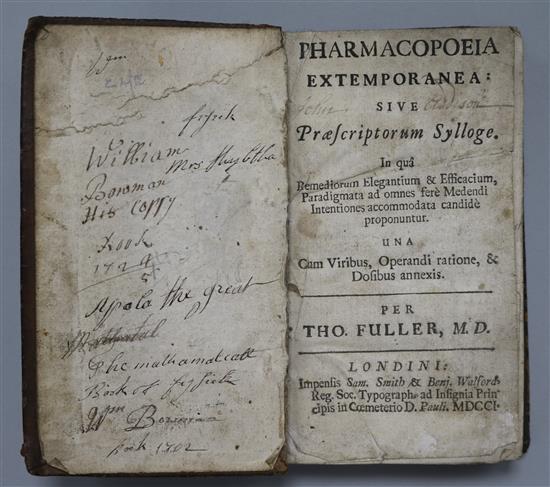 Wm
fysek
William
Mrs
Bowman
His Coppy
Book
1724
Apola the great
The mathamatcall
Book of fysick
Wm Bowman
book 1702
PHARMACOPOEIA
EXTEMPORANEA:
SIVE
Præscriptorum Sylloge.
In quâ
Remediorum Elegantium & Efficacium,
Paradigmata ad omnes ferè Medendi
Intentiones accommodata candidè
proponuntur.
UNA
Cum Viribus, Operandi ratione, &
Dosibus annexis.
PER
THO. FULLER, M.D.
LONDINI:
Impensis Sam. Smith & Benj. Walford
Reg. Soc. Typograph. ad Insignia Prin-
cipis in Cœmeterio D. Pauli. MDCCI.